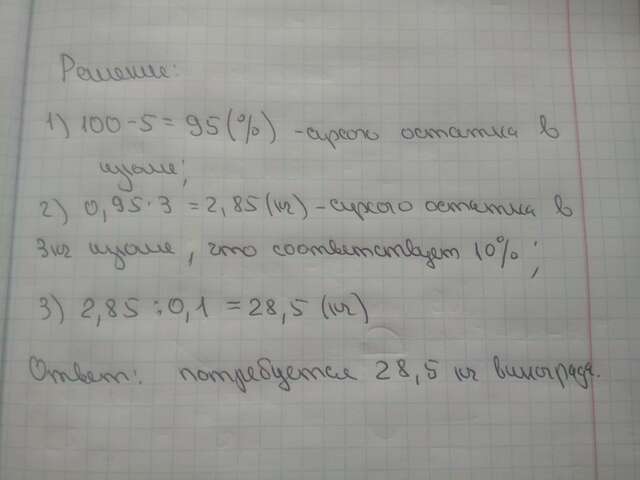 Решение:
1) 100-5=95(%) -сухого остатка в
изюме;
2) 0,95·3=2,85(кг)-сухого остатка в
3кг изюме, что соответствует 10%;
3) 2,85:0,1=28,5 (кг)
Ответ: потребуется 28,5 кг винограда.